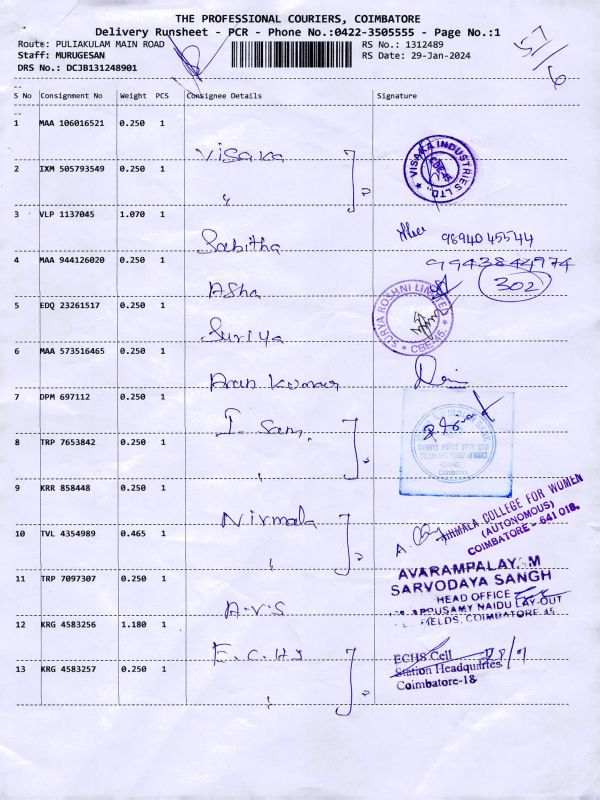 THE PROFESSIONAL COURIERS, COIMBATORE
Delivery Runsheet - PCR - Phone No.:0422-3505555 - Page No.:1
Route: PULIAKULAM MAIN ROAD RS No.: 1312489
Staff: MURUGESAN RS Date: 29-Jan-2024
DRS No.: DCJB131248901
57/6
S No Consignment No Weight PCS Consignee Details Signature
1 MAA 106016521 0.250 1 Visaka
VISAKA INDUSTRIES LTD.,
2 IXM 505793549 0.250 1 "
3 VLP 1137045 1.070 1 Sabitha 98940 45544
4 MAA 944126020 0.250 1 Asha 9943844974
302
5 EDQ 23261517 0.250 1 Suriya
SURYA ROSHNI LIMITED
CBE-45.
6 MAA 573516465 0.250 1 Arun Kumar
7 DPM 697112 0.250 1 I. San,
8 TRP 7653842 0.250 1 "
Coimbatore
9 KRR 858448 0.250 1 Nirmala
NIRMALA COLLEGE FOR WOMEN
(AUTONOMOUS)
COIMBATORE - 641 018.
10 TVL 4354989 0.465 1 "
11 TRP 7097307 0.250 1 A.V.S
AVARAMPALAYAM
SARVODAYA SANGH
HEAD OFFICE
NAIDU LAY-OUT
FIELDS, COIMBATORE
12 KRG 4583256 1.180 1 E.C.HS
13 KRG 4583257 0.250 1 "
ECHS Cell
Station Headquartes
Coimbatore-18